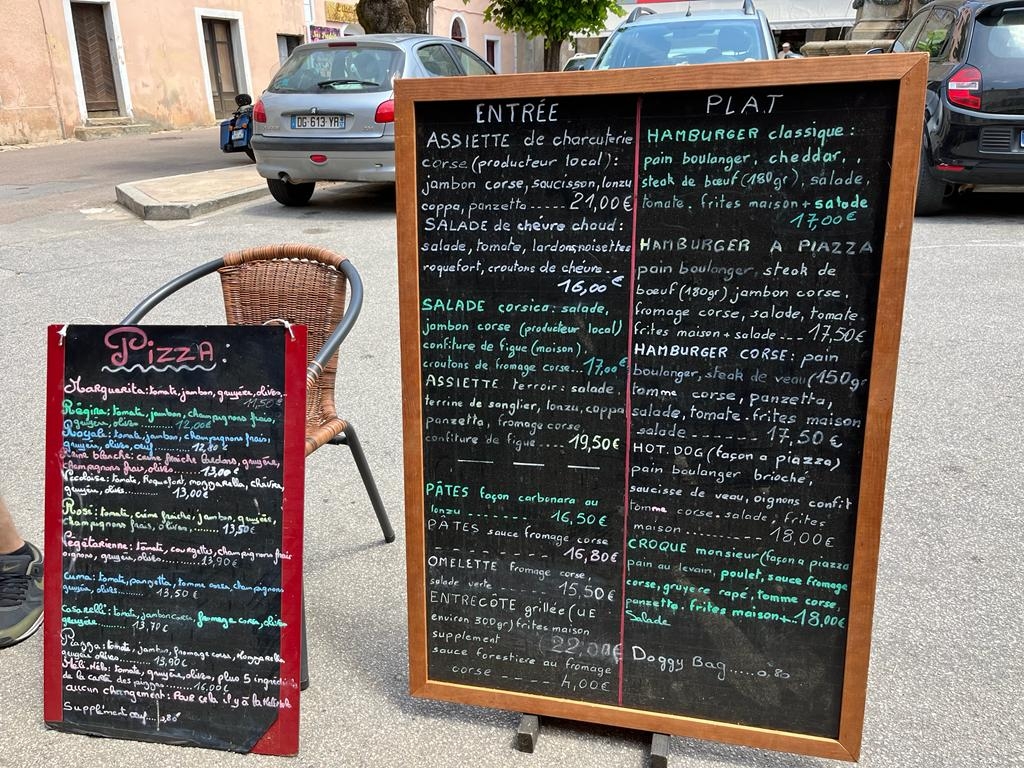 DG-613-YR
Pizza:
Marguerita: tomate, jambon, gruyère, olives..
11,50€
Régina: tomate, jambon, champignons frais,
gruyère, olives ......... 12,00€
Royale: tomate, jambon, champignons frais,
gruyère, olives, œuf ......... 12,80€
Reine blanche: crème fraîche, lardons, gruyère,
champignons frais, olives....... 13,00€
Niçoise: tomate, Roquefort, mozzarella, chèvre,
gruyère, olives......... 13,00€
Rossi: tomate, crème fraîche, jambon, gruyère,
champignons frais, olives....... 13,50€
Végétarienne: tomate, courgettes, champignons frais
oignons, gruyère, olives....... 13,90€
Cuma: tomate, panzetta, tomme corse, champignons
gruyère, olives......... 13,50€
Casarelli: tomate, jambon corse, fromage corse, olives
......... 13,70€
Piazza: tomate, jambon, fromage corse, mozzarella
gruyère, olives......... 13,90€
Méli-Mélo: tomate, gruyère, olives, plus 5 ingrédients
de la carte des pizzas....... 16,00€
aucun changement: Pour cela il y a la
Supplément œuf.... 0,80
ENTRÉE
ASSIETTE de charcuterie
corse (producteur local):
jambon corse, saucisson, lonzu
coppa, panzetta ----- 21,00€
SALADE de chèvre chaud:
salade, tomate, lardons, noisettes
roquefort, croutons de chèvre..
16,00€
SALADE corsica: salade,
jambon corse (producteur local)
confiture de figue (maison),
croutons de fromage corse...17,00€
ASSIETTE terroir: salade
terrine de sanglier, lonzu, coppa
panzetta, fromage corse,
confiture de figue---- 19,50€
PÂTES façon carbonara au
lonzu --------- 16,50€
PÂTES sauce fromage corse
-------- 16,80€
OMELETTE fromage corse,
salade verte ------- 15,50€
ENTRECÔTE grillée (UE
environ 300gr) frites maison
22,00€
supplement
sauce forestiere au fromage
corse ------ 4,00€
PLAT
HAMBURGER classique:
pain boulanger, cheddar, ,
steak de bœuf (180gr), salade,
tomate. frites maison + salade
17,00€
HAMBURGER A PIAZZA
pain boulanger, steak de
bœuf (180gr) jambon corse,
fromage corse, salade, tomate.
frites maison + salade ---- 17,50€
HAMBURGER CORSE: pain
boulanger, steak de veau (150gr
tomme corse, panzetta,
salade, tomate. frites maison
salade ------- 17,50€
HOT.DOG (façon a piazza)
pain boulanger brioché,
saucisse de veau, oignons confit
tomme corse. salade, frites
maison -------- 18,00€
CROQUE monsieur (façon a piazza
pain au levain, poulet, sauce fromage
corse, gruyere rapé, tomme corse,
panzetta. frites maison+--18,00€
Salade
Doggy Bag......0,80